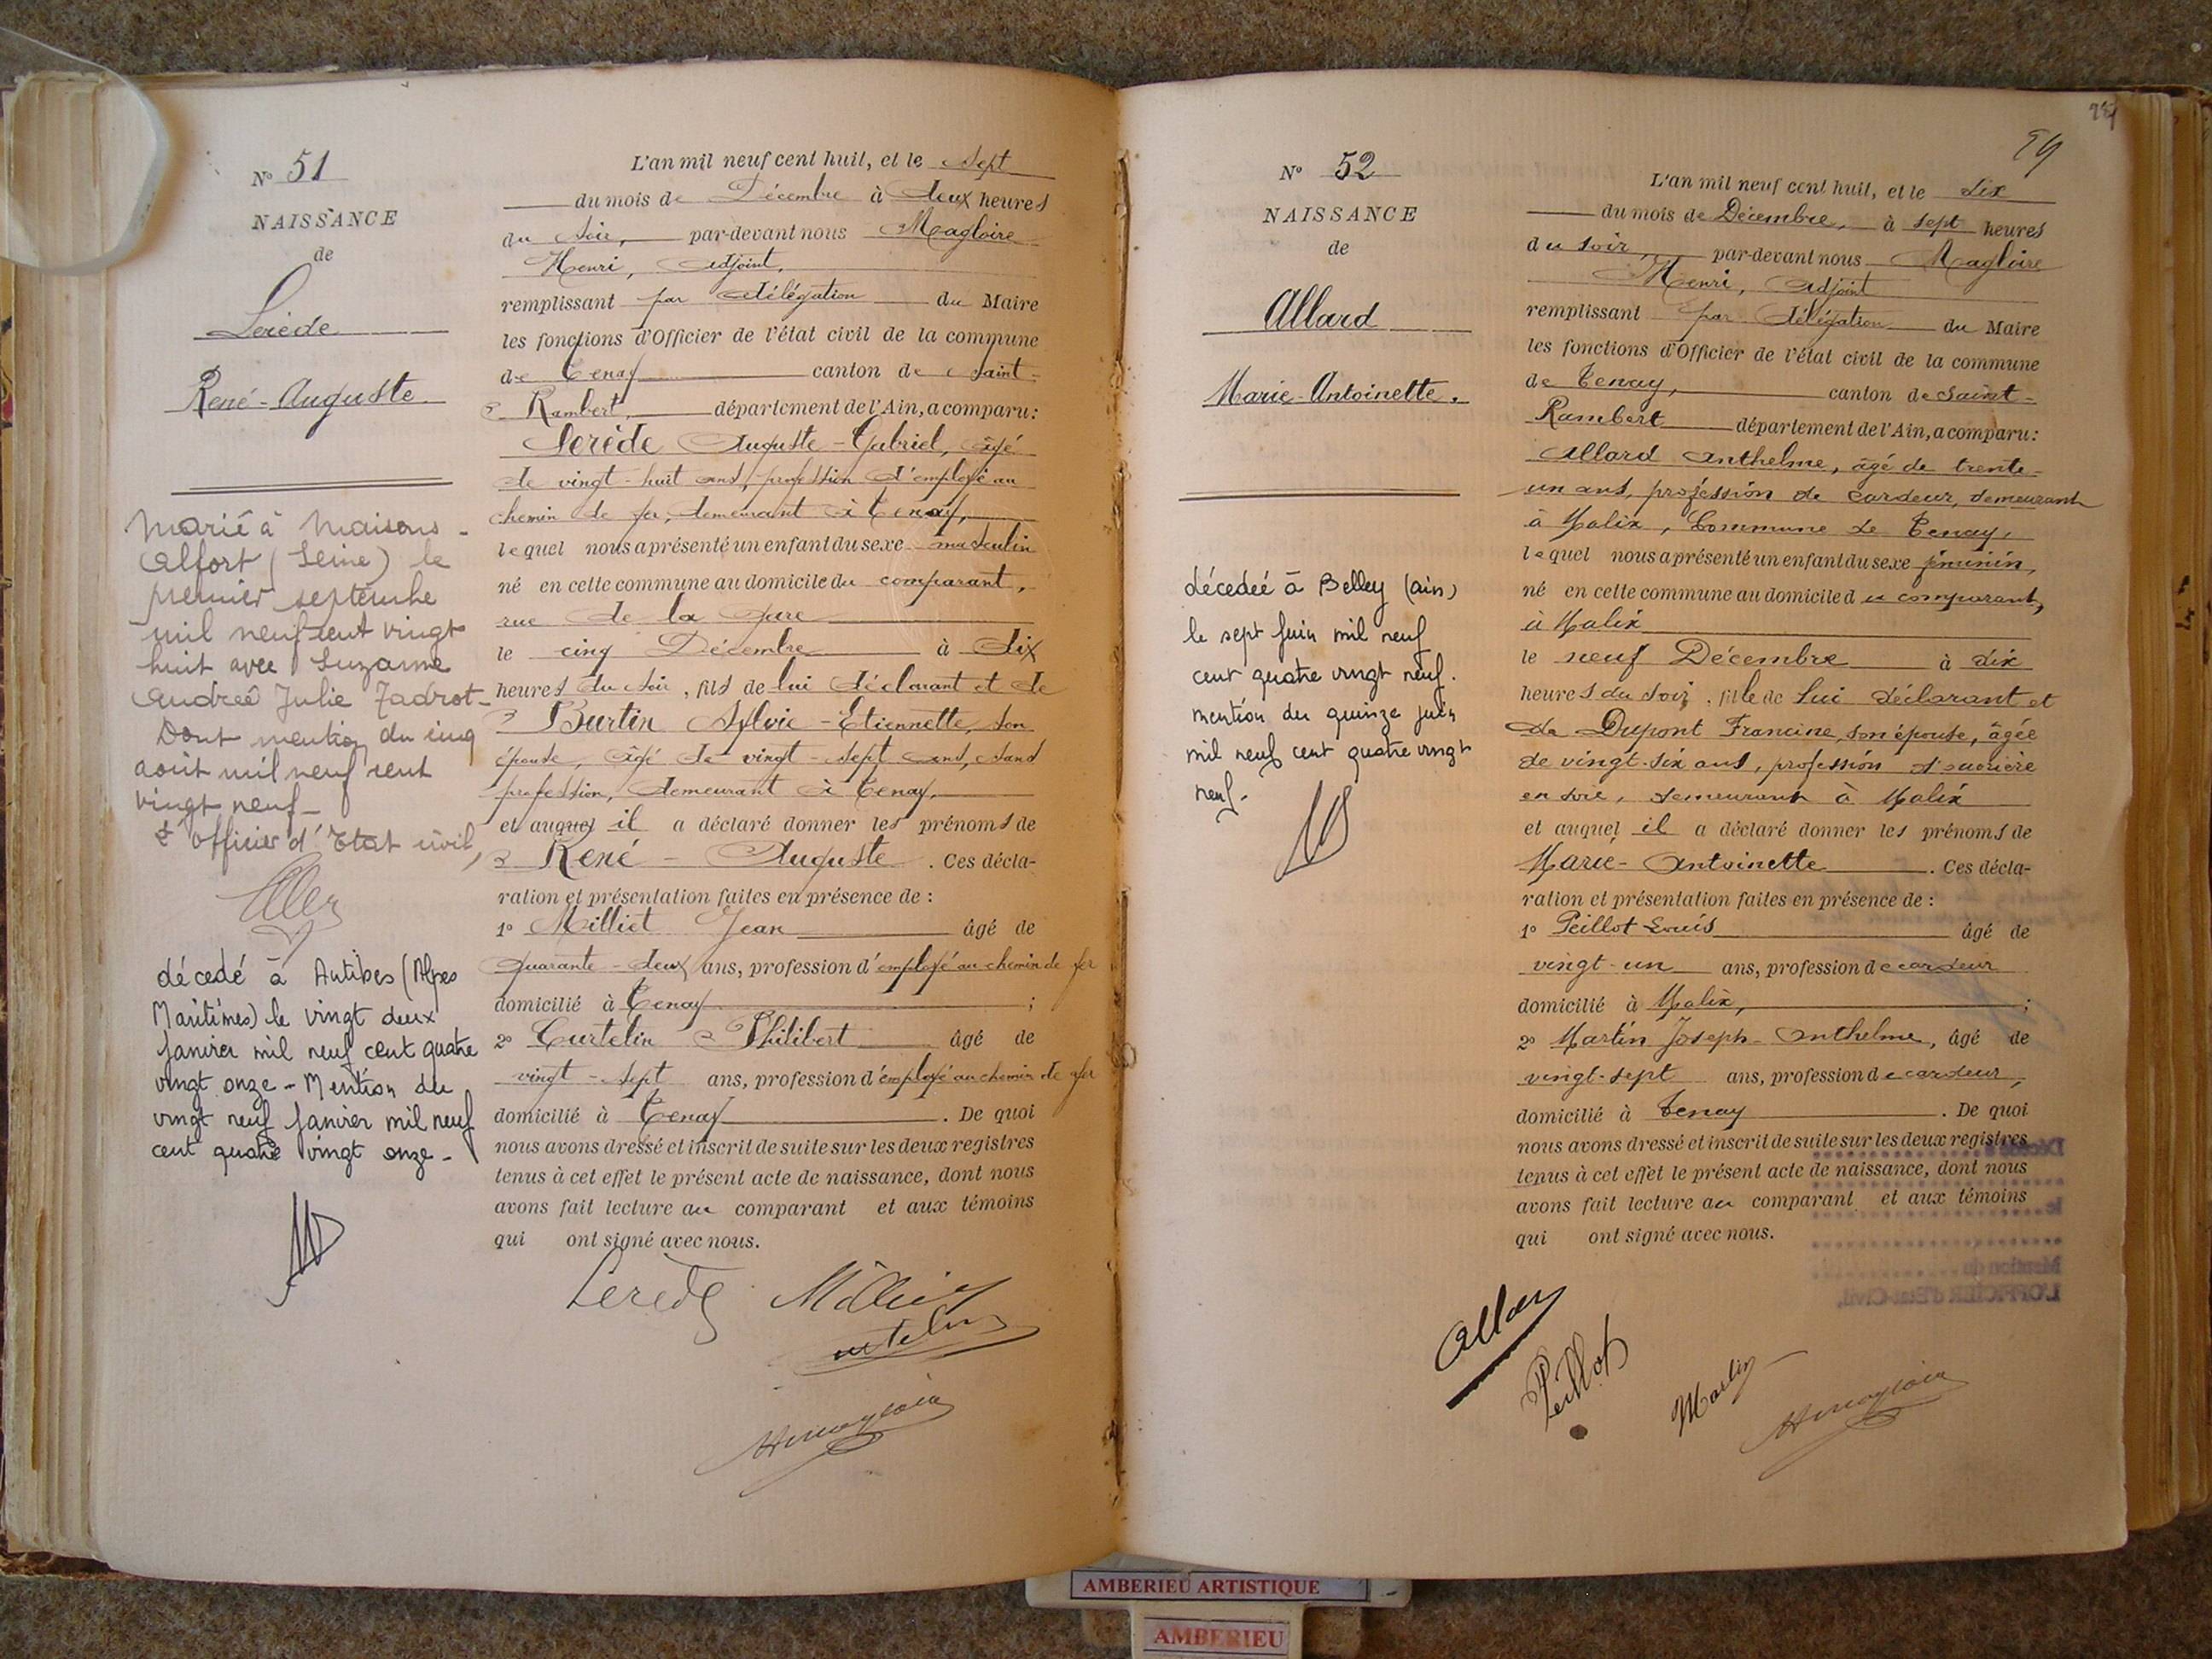 N° 51
NAISSANCE
de
Lerède
René-Auguste
Marié à Maisons-
Alfort (Seine) le
premier septembre
mil neuf cent vingt
huit avec Suzanne
Andrée Julie Jadrot-
Dont mention du cinq
août mil neuf cent
vingt neuf-
L'officier d'Etat civil,
décedé à Antibes (Alpes
Maritimes) le vingt deux
Janvier mil neuf cent quatre
vingt onze - Mention du
vingt neuf Janvier mil neuf
cent quatre vingt onze -
L'an mil neuf cent huit, et le sept
du mois de Décembre à deux heures
du soir, par-devant nous Magloire
Henri, adjoint,
remplissant par délégation du Maire
les fonctions d'Officier de l'état civil de la commune
de Tenay canton de Saint-
Rambert, département de l'Ain, a comparu:
Lerède Auguste-Gabriel, âgé
de vingt-huit ans, profession d'employé au
chemin de fer, demeurant à Tenay,
lequel nous a présenté un enfant du sexe masculin
né en cette commune au domicile du comparant,
rue de la Gare
le cinq Décembre à dix
heures du soir, fils de lui déclarant et de
Burtin Sylvie-Etiennette, son
épouse, âgé de vingt-sept ans, sans
profession, demeurant à Tenay,
et auquel il a déclaré donner les prénoms de
René-Auguste. Ces décla-
ration et présentation faites en présence de :
1° Milliet Jean âgé de
quarante-deux ans, profession d'employé au chemin de fer
domicilié à Tenay ;
2° Curtelin Philibert âgé de
vingt-sept ans, profession d'employé au chemin de fer
domicilié à Tenay. De quoi
nous avons dressé et inscrit de suite sur les deux registres
tenus à cet effet le présent acte de naissance, dont nous
avons fait lecture au comparant et aux témoins
qui ont signé avec nous.
Lerède
59
N° 52
NAISSANCE
de
Allard
Marie-Antoinette.
décedeé à Belley (ain)
le sept Juin mil neuf
cent quatre vingt neuf.
mention du quinze juin
mil neuf cent quatre vingt
neuf-
L'an mil neuf cent huit, et le dix
du mois de Décembre, à sept heures
du soir, par-devant nous Magloire
Henri, adjoint
remplissant par délégation du Maire
les fonctions d'Officier de l'état civil de la commune
de Tenay, canton de Saint-
Rambert département de l'Ain, a comparu:
Allard Anthelme, âgé de trente-
un ans, profession de cardeur, demeurant
à Malix, Commune de Tenay,
lequel nous a présenté un enfant du sexe féminin,
né en cette commune au domicile du comparant,
à Malix
le neuf Décembre à dix
heures du soir, fille de lui déclarant et
de Dupont Francine, son épouse, âgée
de vingt-six ans, profession d'ouvrière
en soie, demeurant à Malix
et auquel il a déclaré donner les prénoms de
Marie-Antoinette. Ces décla-
ration et présentation faites en présence de :
1° Peillot Louis âgé de
vingt-un ans, profession de cardeur
domicilié à Malix, ;
2° Martin Joseph-Anthelme, âgé de
vingt-sept ans, profession de cardeur,
domicilié à Tenay. De quoi
nous avons dressé et inscrit de suite sur les deux registres
tenus à cet effet le présent acte de naissance, dont nous
avons fait lecture au comparant et aux témoins
qui ont signé avec nous.
Peillot
Martin
AMBERIEU ARTISTIQUE
AMBERIEU